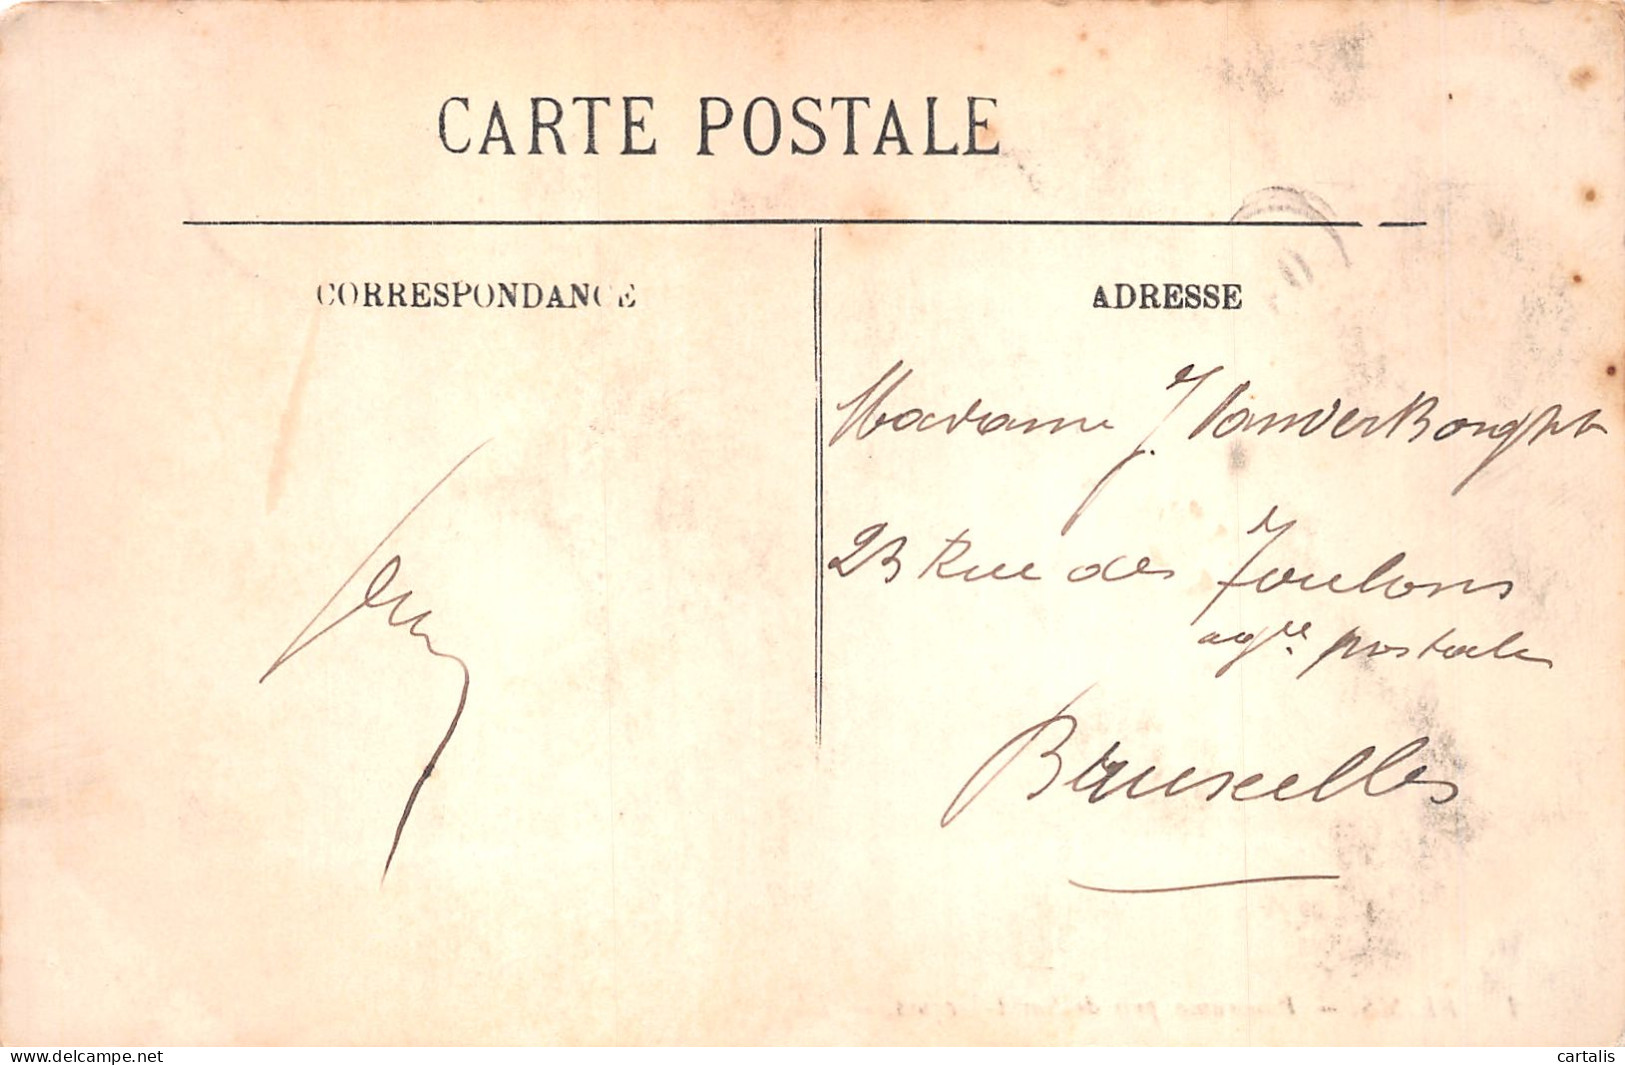 CARTE POSTALE
CORRESPONDANCE
ADRESSE
Madame J. VanderBorght
23 Rue des Foulons
agce postale
Bruxelles
www.delcampe.net
cartalis